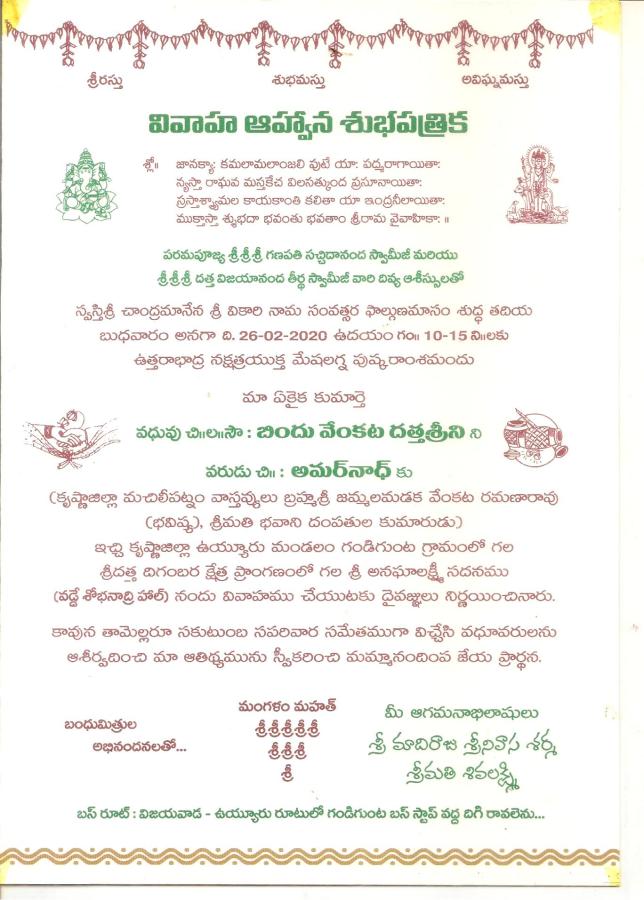 శ్రీరస్తు శుభమస్తు అవిఘ్నమస్తు
వివాహ ఆహ్వాన శుభపత్రిక
శ్లో॥ జానక్యా: కమలామలాంజలి పుటే యా: పద్మరాగాయితా:
న్యస్తా రాఘవ మస్తకేచ విలసత్కుంద ప్రసూనాయితా:
స్రస్తాశ్శ్యామల కాయకాంతి కలితా యా ఇంద్రనీలాయితా:
ముక్తాస్తా శ్శుభదా భవంతు భవతాం శ్రీరామ వైవాహికా: ॥
పరమపూజ్య శ్రీశ్రీశ్రీ గణపతి సచ్చిదానంద స్వామీజీ మరియు
శ్రీశ్రీశ్రీ దత్త విజయానంద తీర్థ స్వామీజీ వారి దివ్య ఆశీస్సులతో
స్వస్తిశ్రీ చాంద్రమానేన శ్రీ వికారి నామ సంవత్సర ఫాల్గుణమాసం శుద్ధ తదియ
బుధవారం అనగా ది. 26-02-2020 ఉదయం గం॥ 10-15 ని॥లకు
ఉత్తరాభాద్ర నక్షత్రయుక్త మేషలగ్న పుష్కరాంశమందు
మా ఏకైక కుమార్తె
వధువు చి॥ల॥సౌ : బిందు వేంకట దత్తశ్రీని ని
వరుడు చి॥ : అమర్‌నాధ్ కు
(కృష్ణాజిల్లా మచిలీపట్నం వాస్తవ్యులు బ్రహ్మశ్రీ జమ్మలమడక వేంకట రమణారావు
(భవిష్య), శ్రీమతి భవాని దంపతుల కుమారుడు)
ఇచ్చి కృష్ణాజిల్లా ఉయ్యూరు మండలం గండిగుంట గ్రామంలో గల
శ్రీదత్త దిగంబర క్షేత్ర ప్రాంగణంలో గల శ్రీ అనఘాలక్ష్మీ సదనము
(వడ్డే శోభనాద్రి హాల్) నందు వివాహము చేయుటకు దైవజ్ఞులు నిర్ణయించినారు.
కావున తామెల్లరూ సకుటుంబ సపరివార సమేతముగా విచ్చేసి వధూవరులను
ఆశీర్వదించి మా ఆతిథ్యమును స్వీకరించి మమ్మానందింప జేయ ప్రార్థన.
బంధుమిత్రుల
అభినందనలతో...
మంగళం మహత్
శ్రీశ్రీశ్రీశ్రీశ్రీ
శ్రీశ్రీశ్రీ
శ్రీ
మీ ఆగమనాభిలాషులు
శ్రీ మాదిరాజు శ్రీనివాస శర్మ
శ్రీమతి శివలక్ష్మి
బస్ రూట్ : విజయవాడ - ఉయ్యూరు రూటులో గండిగుంట బస్ స్టాప్ వద్ద దిగి రావలెను...